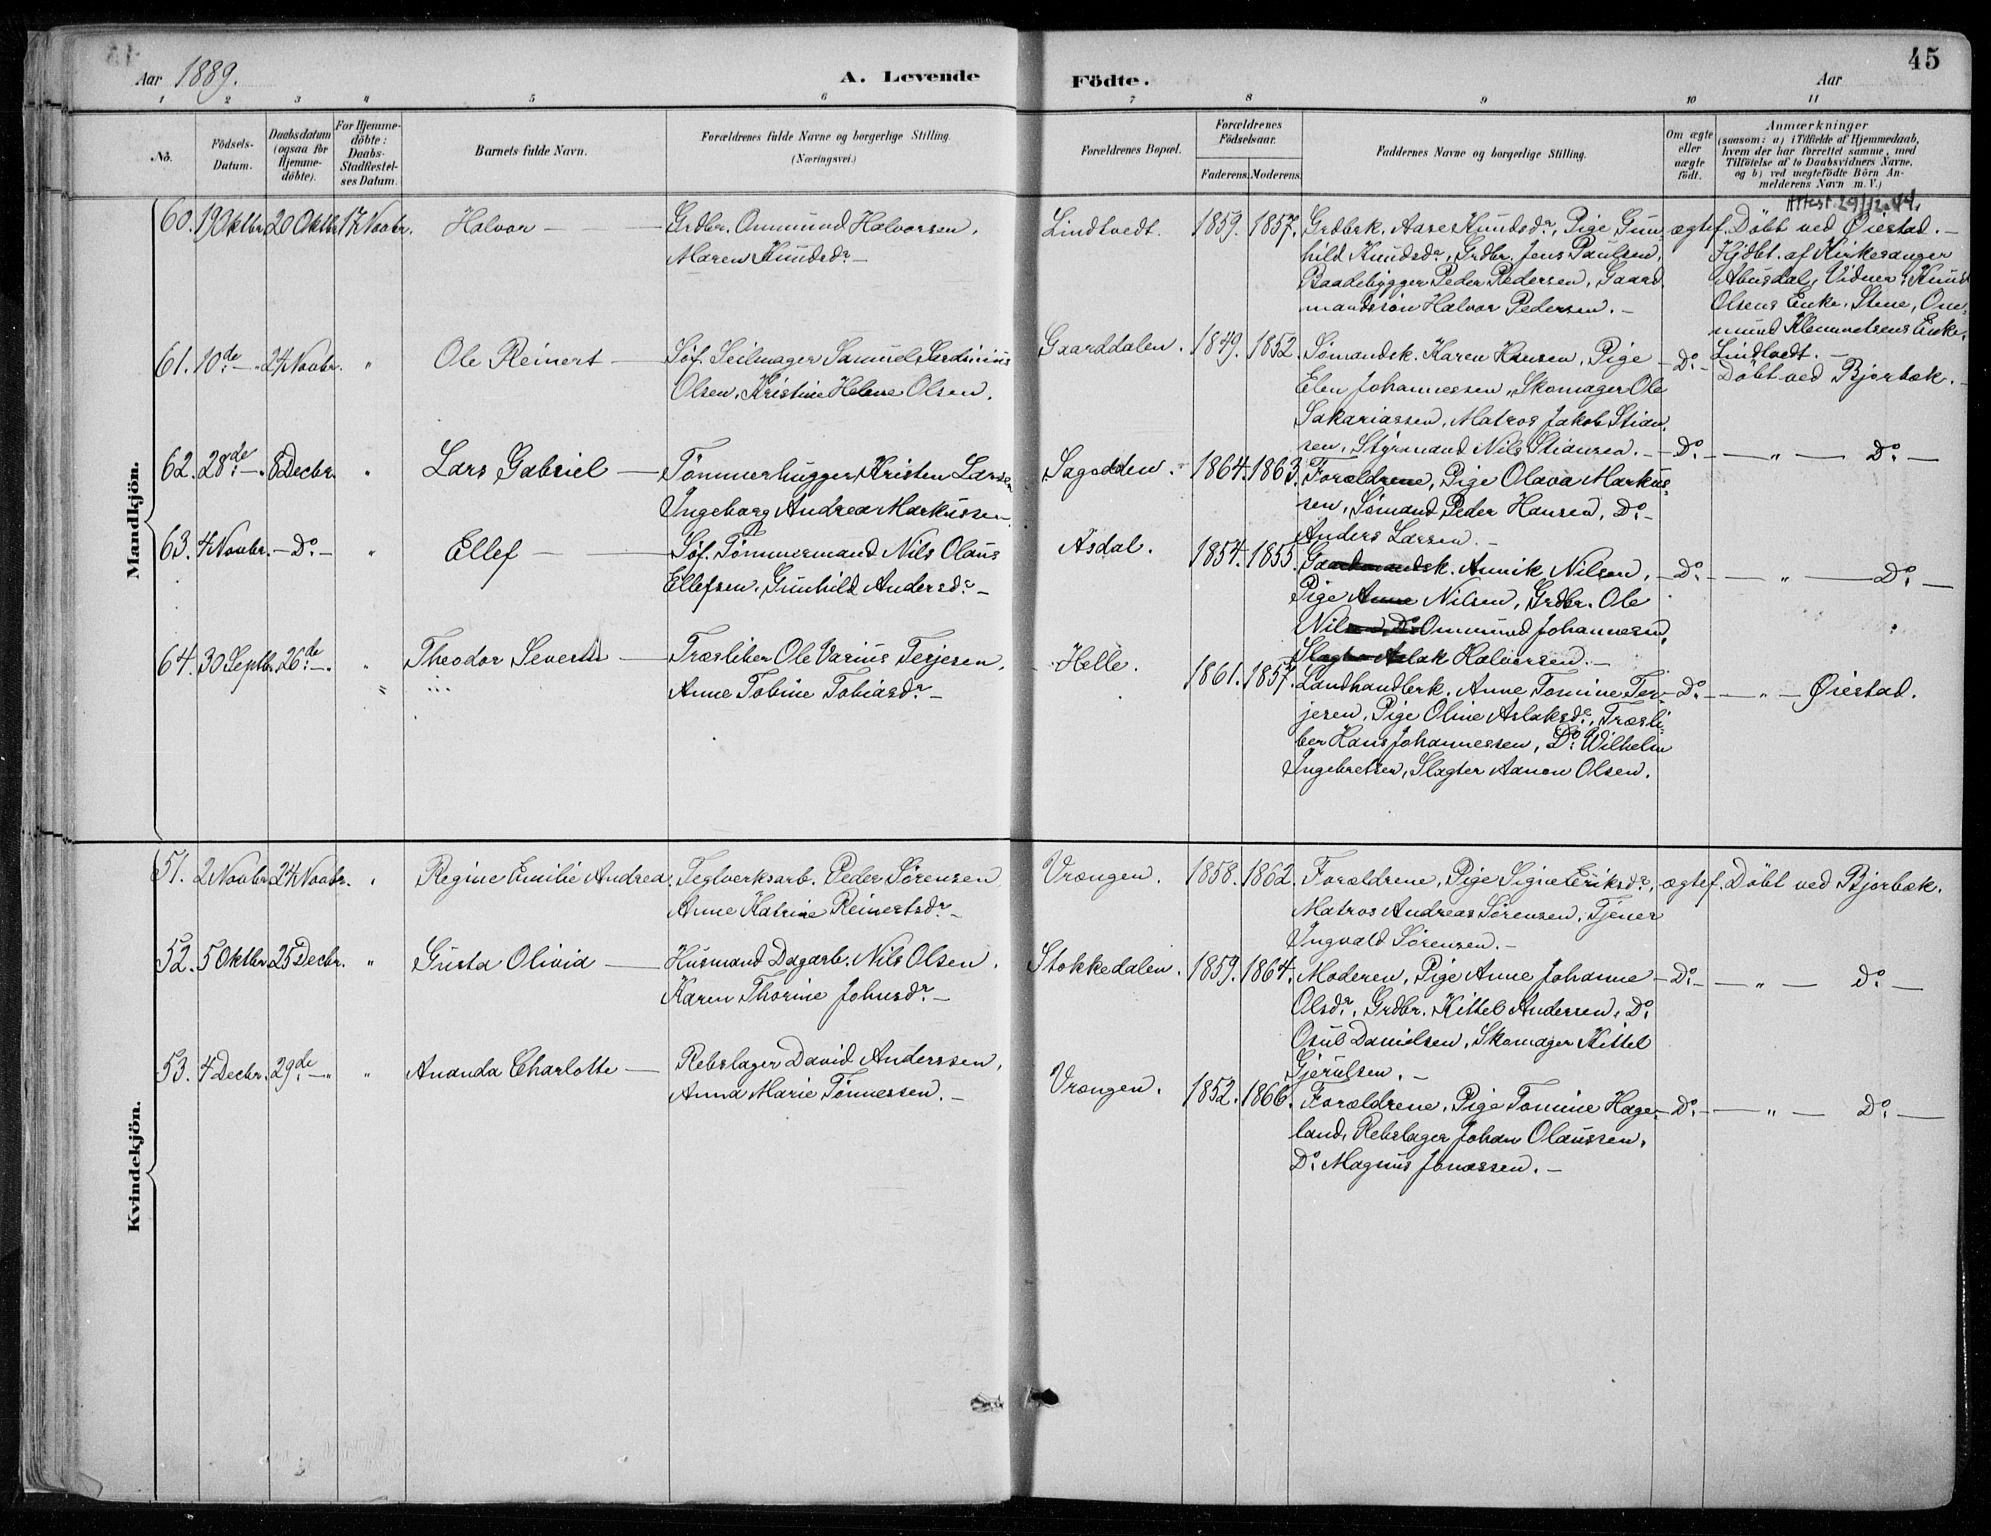 45
Aar 1889.
A. Levende
Födte.
Aar
1 2 3 4 5 6 7 8 9 10 11
No.
Födsels-
Datum.
Daabsdatum
(ogsaa för
Hjemme-
döbte).
For Hjemme-
döbte:
Daabs-
Stadfæstel-
ses Datum.
Barnets fulde Navn.
Forældrenes fulde Navne og borgerlige Stilling.
(Næringsvei.)
Forældrenes Bopæl.
Forældrenes
Födselsaar.
Faderens. Moderens.
Faddernes Navne og borgerlige Stilling.
Om ægte
eller
uægte
födt.
Anmærkninger
(saasom: a) i Tilfælde af Hjemmedaab,
hvem der har forrettet samme, med
Tilföielse af to Daabsvidners Navne,
og b) ved uægtefödte Börn An-
melderens Navn m. V.)
Mandkjön.
60. 19 Oktbr. 20 Oktbr. 17 Novbr. Halvor —
Grdbr. Ommund Halvorsen,
Maren Knudsdr. —
Lindtvedt. 1859. 1857.
Grdbrk. Aase Knudsdr, Pige Gun-
hild Knudsdr, Grdbr. Jens Paulsen,
Baadebygger Peder Pedersen, Gaard-
mandssön Halvor Pedersen. —
ægtef.
Attest 29/12.44.
Döbt ved Øiestad. —
Hjdbt. af Kirkesanger
Abusdal, Vidner: Knud
Olsens Enke, Stine, Om-
mund Klemmetsens Enke,
Lindtvedt. —
61. 10de — 24 Novbr. " Ole Reinert —
Söf. Seilmager Samuel Serdinius
Olsen, Kristine Helene Olsen.
Gaarddalen. 1849. 1852.
Sömandsk. Karen Hansen, Pige
Elen Johannessen, Skomager Ole
Sakariassen, Matros Jakob Stian-
sen, Styrmand Nils Stiansen. —
Do. —
Döbt ved Bjorbæk. —
62. 28de — 8 Decbr. " Lars Gabriel —
Tömmerhugger Kristen Larsen
Ingeborg Andrea Markussen.
Sagodden. 1864. 1863.
Forældrene, Pige Olava Markus-
sen, Sömand Peder Hansen, Do. —
Anders Larsen. —
Do. — — " — Do. —
63. 4 Novbr. — Do. — " Ellef —
Söf. Tömmermand Nils Olaus
Ellefsen, Gunhild Andersdr. —
Asdal. 1854. 1855.
Gaardmandsk. Annik Nilsen,
Pige Anne Nilsen, Grdbr. Ole
Nilsen, Do. Ommund Johannesen,
Slagter Aslak Halvorsen. —
Do. — — " — Do. —
64. 30 Septbr. 26de — " Theodor Severin —
Træsliber Ole Varius Terjesen,
Anne Tobine Tobiasdr. —
Helle. 1861. 1857.
Landhandlerk. Anne Tomine Ter-
jesen, Pige Oline Aslaksdr, Træsli-
ber Hans Johannessen, Do. Wilhelm
Ingebretsen, Slagter Aanon Olsen.
Do. — — " — Øiestad.
Kvindekjön.
51. 2 Novbr. 24 Novbr. " Regine Emilie Andrea.
Teglverksarb. Peder Sörensen
Anne Katrine Reinertsdr. —
Vrængen. 1858. 1862.
Forældrene, Pige Signe Eriksdr,
Matros Andreas Sörensen, Tjener
Ingvald Sörensen. —
ægtef.
Döbt ved Bjorbæk.
52. 5 Oktbr. 25 Decbr. " Gusta Olivia —
Husmand Dagarb. Nils Olsen,
Karen Thorine Johnsdr. —
Stokkedalen. 1859. 1864.
Moderen, Pige Anne Johanne
Olsdr, Grdbr. Kittel Andersen, Do.
Osul Danielsen, Skomager Kittel
Gjerulsen. —
Do. — — " — Do. —
53. 4 Decbr. 29de — " Ananda Charlotte —
Rebslager David Anderssen,
Anna Marie Tönnessen. —
Vrængen. 1852. 1866.
Forældrene, Pige Tomine Hage-
land, Rebslager Johan Olaussen,
Do. Magnus Jonassen. —
Do. — — " — Do. —